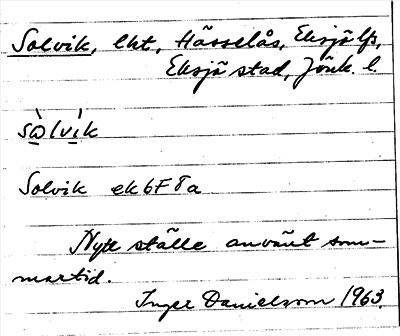 Solvik, lht, Hässelås, Eksjö lfs,
Eksjö stad, Jönk. l.
sὼlvík
Solvik ek 6F 8a
Nytt ställe använt som-
martid.
Inger Danielsson 1963.